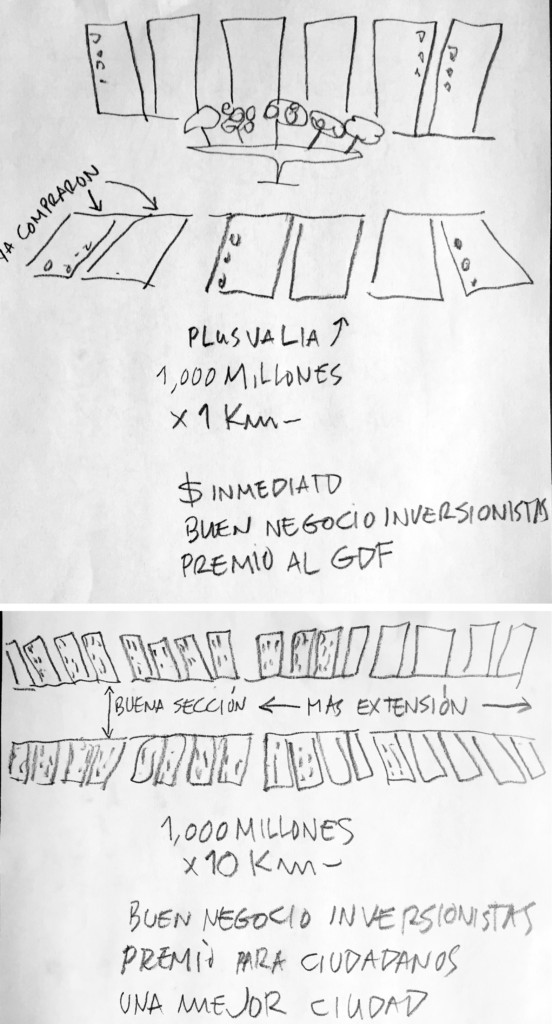 YA COMPRARON
PLUSVALIA ↑
1,000 MILLONES
x 1 Km-
$ INMEDIATO
BUEN NEGOCIO INVERSIONISTAS
PREMIO AL GDF
BUENA SECCIÓN ← MAS EXTENSIÓN →
1,000 MILLONES
x 10 Km-
BUEN NEGOCIO INVERSIONISTAS
PREMIO PARA CIUDADANOS
UNA MEJOR CIUDAD